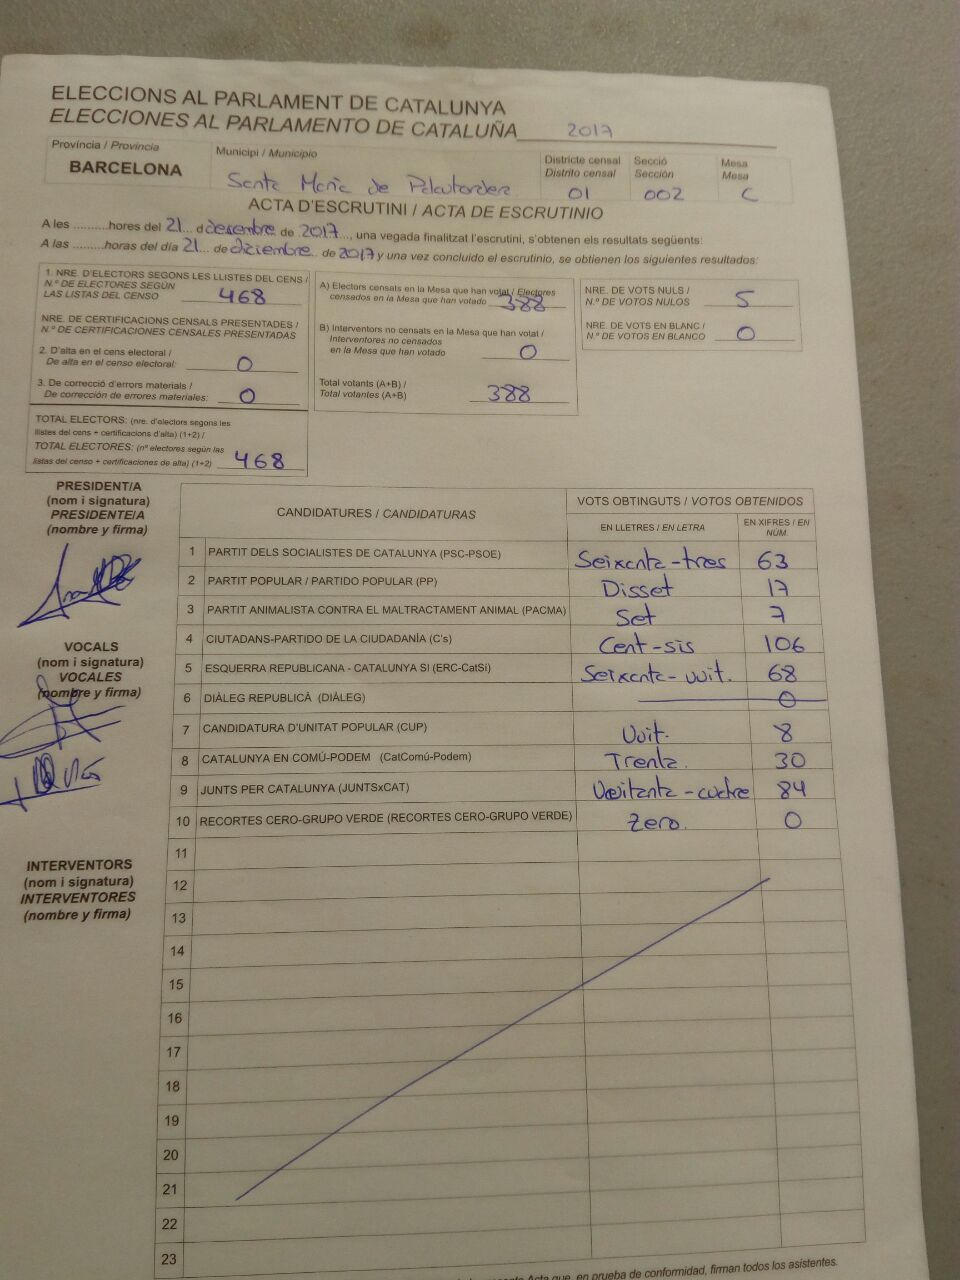 ELECCIONS AL PARLAMENT DE CATALUNYA
ELECCIONES AL PARLAMENTO DE CATALUÑA 2017
Província / Provincia
BARCELONA
Municipi / Municipio
Santa Maria de Palautordera
Districte censal
Distrito censal
01
Secció
Sección
002
Mesa
Mesa
C
ACTA D'ESCRUTINI / ACTA DE ESCRUTINIO
A les .........hores del 21... d desembre de 2017..., una vegada finalitzat l'escrutini, s'obtenen els resultats següents:
A las .........horas del día 21... de diciembre.. de 2017 y una vez concluido el escrutinio, se obtienen los siguientes resultados:
1. NRE. D'ELECTORS SEGONS LES LLISTES DEL CENS /
N.º DE ELECTORES SEGÚN
LAS LISTAS DEL CENSO 468
NRE. DE CERTIFICACIONS CENSALS PRESENTADES /
N.º DE CERTIFICACIONES CENSALES PRESENTADAS
2. D'alta en el cens electoral /
De alta en el censo electoral: 0
3. De correcció d'errors materials /
De corrección de errores materiales: 0
TOTAL ELECTORS: (nre. d'electors segons les
llistes del cens + certificacions d'alta) (1+2) /
TOTAL ELECTORES: (nº electores según las
listas del censo + certificaciones de alta) (1+2) 468
A) Electors censats en la Mesa que han votat / Electores
censados en la Mesa que han votado 388
B) Interventors no censats en la Mesa que han votat /
Interventores no censados
en la Mesa que han votado 0
Total votants (A+B) /
Total votantes (A+B) 388
NRE. DE VOTS NULS /
N.º DE VOTOS NULOS 5
NRE. DE VOTS EN BLANC /
N.º DE VOTOS EN BLANCO 0
PRESIDENT/A
(nom i signatura)
PRESIDENTE/A
(nombre y firma)
VOCALS
(nom i signatura)
VOCALES
(nombre y firma)
INTERVENTORS
(nom i signatura)
INTERVENTORES
(nombre y firma)
CANDIDATURES / CANDIDATURAS
VOTS OBTINGUTS / VOTOS OBTENIDOS
EN LLETRES / EN LETRA
EN XIFRES / EN NÚM.
1 PARTIT DELS SOCIALISTES DE CATALUNYA (PSC-PSOE) Seixanta-tres 63
2 PARTIT POPULAR / PARTIDO POPULAR (PP) Disset 17
3 PARTIT ANIMALISTA CONTRA EL MALTRACTAMENT ANIMAL (PACMA) Set 7
4 CIUTADANS-PARTIDO DE LA CIUDADANÍA (C's) Cent-sis 106
5 ESQUERRA REPUBLICANA - CATALUNYA SI (ERC-CatSí) Seixanta-vuit. 68
6 DIÀLEG REPUBLICÀ (DIÀLEG) 0
7 CANDIDATURA D'UNITAT POPULAR (CUP) Vuit. 8
8 CATALUNYA EN COMÚ-PODEM (CatComú-Podem) Trenta. 30
9 JUNTS PER CATALUNYA (JUNTSxCAT) Vuitanta-cuatre 84
10 RECORTES CERO-GRUPO VERDE (RECORTES CERO-GRUPO VERDE) Zero. 0
11
12
13
14
15
16
17
18
19
20
21
22
23
Acta que, en prueba de conformidad, firman todos los asistentes.